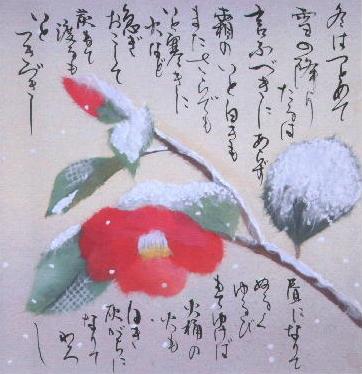 冬はつとめて
雪の降り
たるは
言ふべきにあらず
霜のいと白きも
またさらでも
いと寒きに
火など
急ぎ
おこして
炭もて
渡るも
いと
つきづきし
昼になりて
ぬるく
ゆるび
もてゆけば
火桶の
火も
白き
灰がちに
なりて
わろ
し